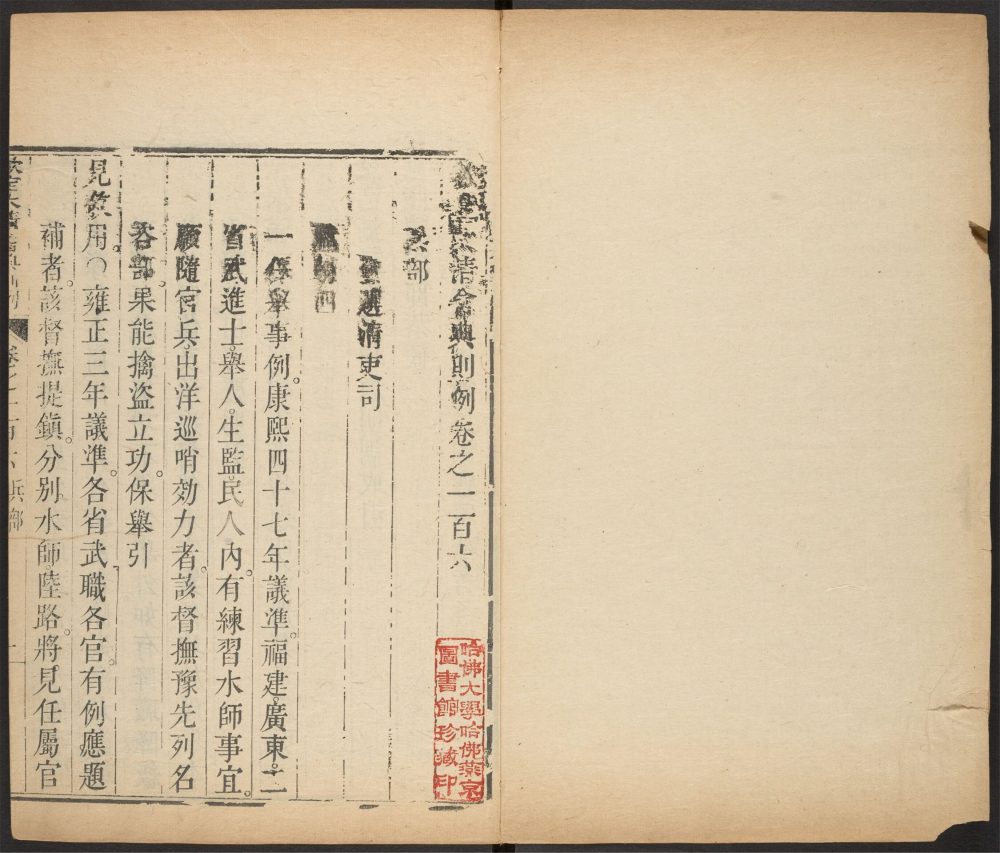 大清會典則例卷之一百六
部
選清吏司
四
一保舉事例。康熙四十七年議準。福建廣東二
省武進士舉人。生監民人內。有練習水師事宜。
願隨官兵出洋巡哨効力者。該督撫豫先列名
咨部。果能擒盜立功。保舉引
見敘用。○雍正三年議準。各省武職各官。有例應題
補者。該督撫提鎮。分別水師陸路。將見任屬官
兵部
哈佛大學哈佛燕京
圖書館珍藏印